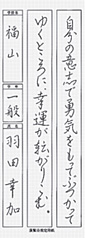 自分の意志で勇気をもってぶつかって
ゆくところに幸運が転がりこむ。
福山
一般
羽田幸加